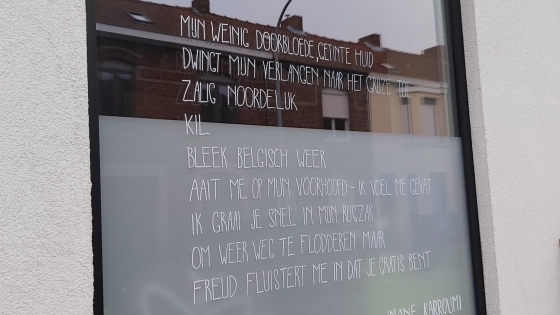 MIJN WEINIG DOORBLOEDE, GETINTE HUID
DWINGT MIJN VERLANGEN NAAR HET GRIJZE TOT
ZALIG NOORDELIJK
KIL
BLEEK BELGISCH WEER
AAIT ME OP MIJN VOORHOOFD - IK VOEL ME GEVAT
IK GRAAI JE SNEL IN MIJN RUGZAK
OM WEER WEG TE FLODDEREN MAAR
FREUD FLUISTERT ME IN DAT JE GRATIS BENT
IMANE KARROUMI